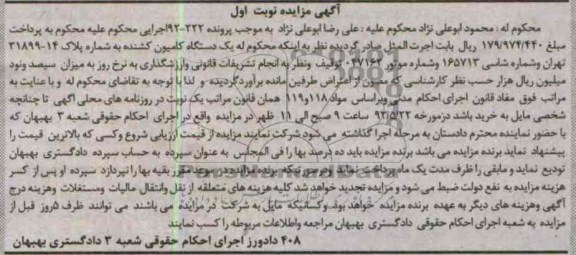 آگهی مزایده نوبت اول
محکوم له : محمود ابوعلی نژاد محکوم علیه : علی رضا ابوعلی نژاد به موجب پرونده ۹۲-۲۲۲اجرایی محکوم علیه محکوم به پرداخت
مبلغ ۱۷۹/۹۷۴/۴۴۰ ریال بابت اجرت المثل صادر گردیده نظر به اینکه محکوم له یک دستگاه کامیون کشنده به شماره پلاک ۱۴-۳۱۸۹۹
تهران وشماره شاسی ۱۶۵۷۱۳ وشماره موتور ۰۴۷۱۶۲ توقیف ونظر به انجام تشریفات قانونی وارزشگذاری به نرخ روز به میزان سیصد ونود
میلیون ریال هزار حسب نظر کارشناسی که مصون از اعتراض طرفین مانده برآورد گردیده و لذا با توجه به تقاضای محکوم له و با عنایت به
مراتب فوق مفاد قانون اجرای احکام مدنی وبراساس مواد ۱۱۸و۱۱۹ همان قانون مراتب یک نوبت در روزنامه های محلی آگهی تا چنانچه
شخصی مایل به خرید باشد درمورخه ۹۳/۵/۲۲ ساعت ۹ صبح الی ۱۱ ظهر در مزایده واقع در اجرای احکام حقوقی شعبه ۳ بهبهان که
با حضور نماینده محترم دادستان به مرحله اجرا گذاشته می شود شرکت نمایند مزایده از قیمت ارزیابی شروع وکسی که بالاترین قیمت را
پیشنهاد نماید برنده مزایده می باشد برنده مزایده باید ده درصد بها را فی المجلس به عنوان سپرده به حساب سپرده دادگستری بهبهان
تودیع نماید و مابقی را ظرف مدت یک ماه پرداخت نماید ودر صورتیکه برنده مزایده در موعد مقرر بقیه بها را نپردازد سپرده او پس از کسر
هزینه مزایده به نفع دولت ضبط می شود و مزایده تجدید خواهد شد کلیه هزینه های متعلقه از نقل وانتقال مالیات ومستغلات وهزینه درج
آگهی وهزینه های دیگر به عهده برنده مزایده خواهد بود وکسانیکه مایل به شرکت در مزایده می باشند می توانند ظرف ۵روز قبل از
مزایده به شعبه اجرای احکام حقوقی دادگستری بهبهان مراجعه واطلاعات مربوطه را کسب نمایند
۴۰۸ دادورز اجرای احکام حقوقی شعبه ۳ دادگستری بهبهان